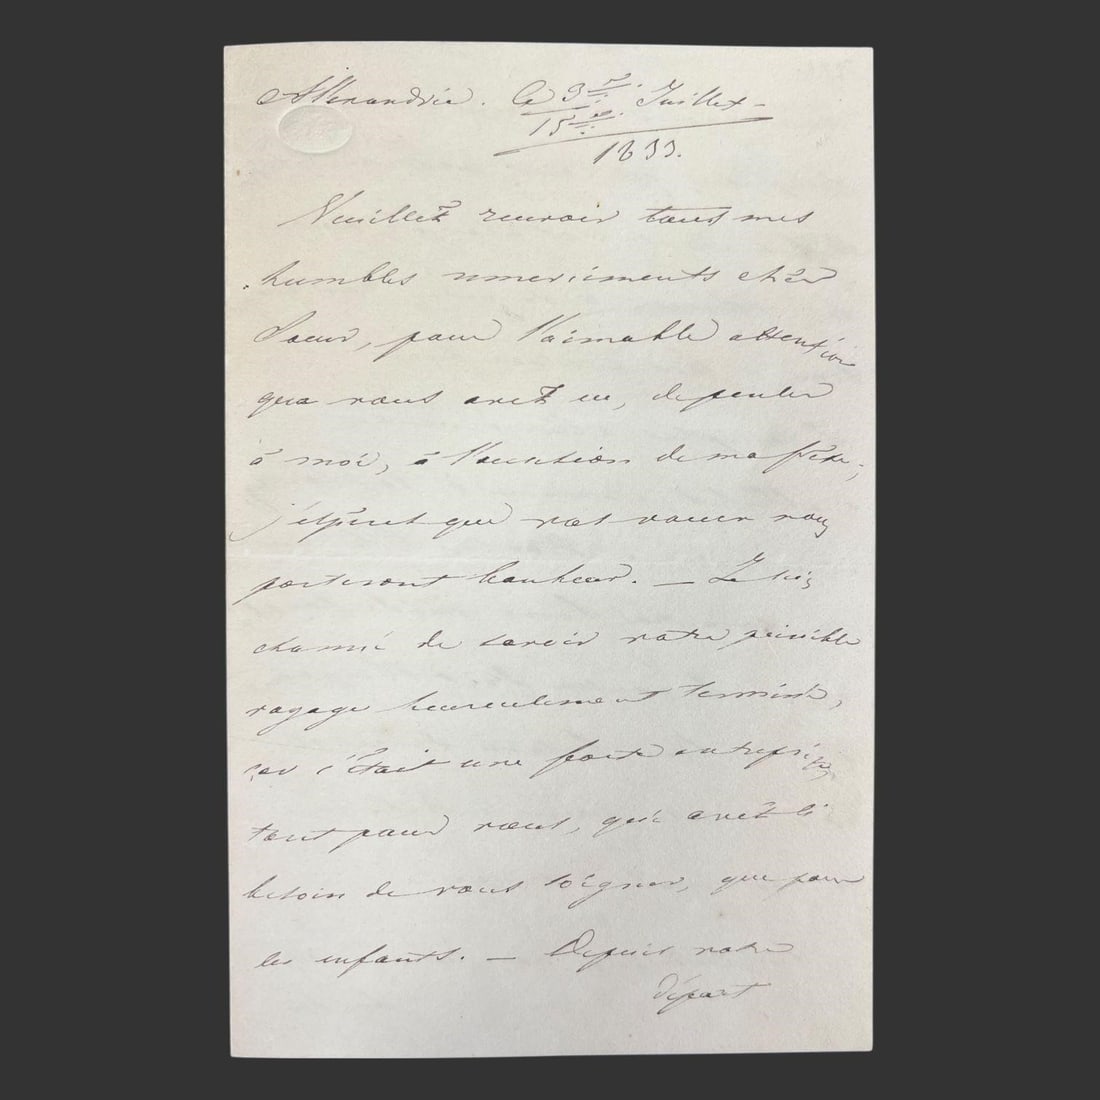 Allexandrie. Ce 3 Juillet –
15
1833.
Veuillez recevoir tous mes
humbles remerciments chère
Soeur, pour l'aimable attention
que vous avez eu, de penser
à moi, à l'occasion de ma fête;
j'espère que vos voeux nous
porteront bonheur. – Je suis
charmé de savoir votre pénible
voyage heureusement terminé,
car c'était une forte entreprise
tant pour vous, qui avez le
besoin de vous soigner, que pour
les enfants. – Depuis votre
départ